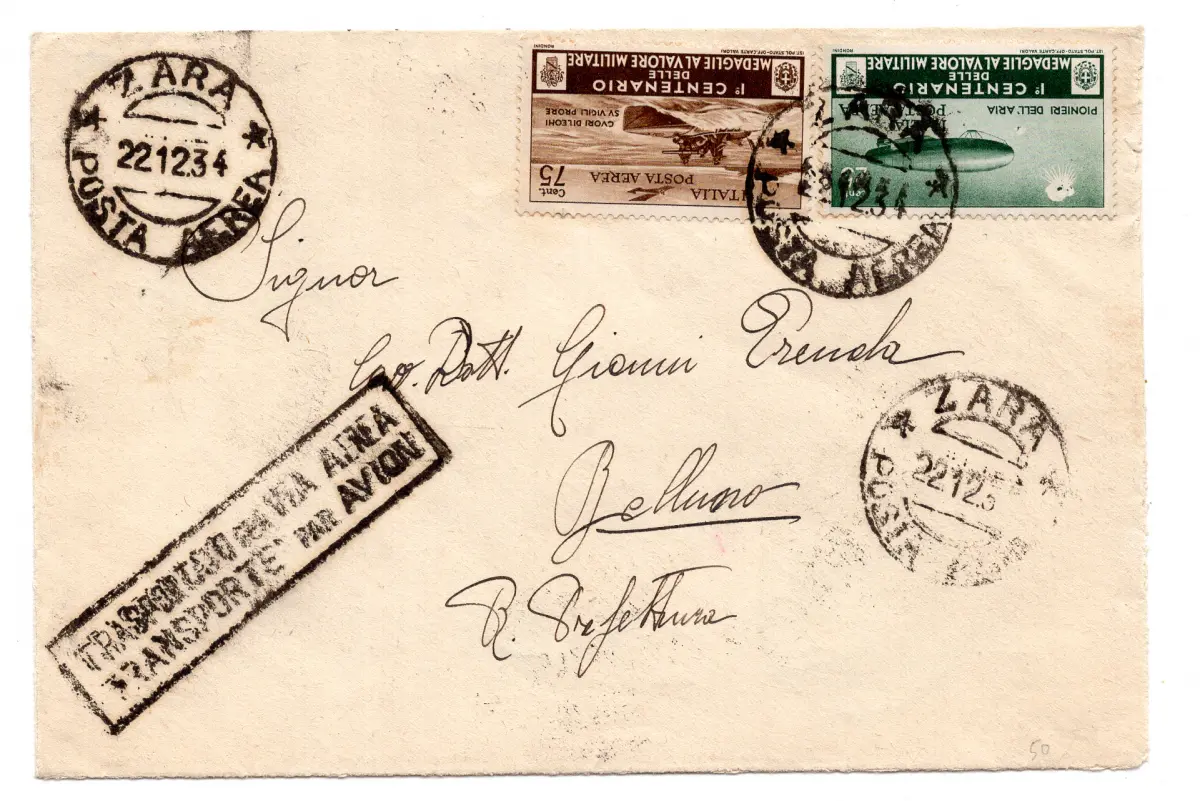 ZARA
22 12 34
POSTA AEREA
RONDINI
IST. POL. STATO-OFF. CARTE VALORI
I° CENTENARIO
DELLE
MEDAGLIE AL VALORE MILITARE
CVORI DI LEONI
SV VIGILI PRORE
Cent. 75
ITALIA
POSTA AEREA
IST. POL. STATO-OFF. CARTE VALORI
I° CENTENARIO
DELLE
MEDAGLIE AL VALORE MILITARE
PIONIERI DELL'ARIA
12 34
AEREA
Signor
Cav. Dott. Gianni
Belluno
R. Prefettura
ZARA
22 12 3
TRASPORTATO PER VIA AEREA
TRANSPORTE PAR AVION
50